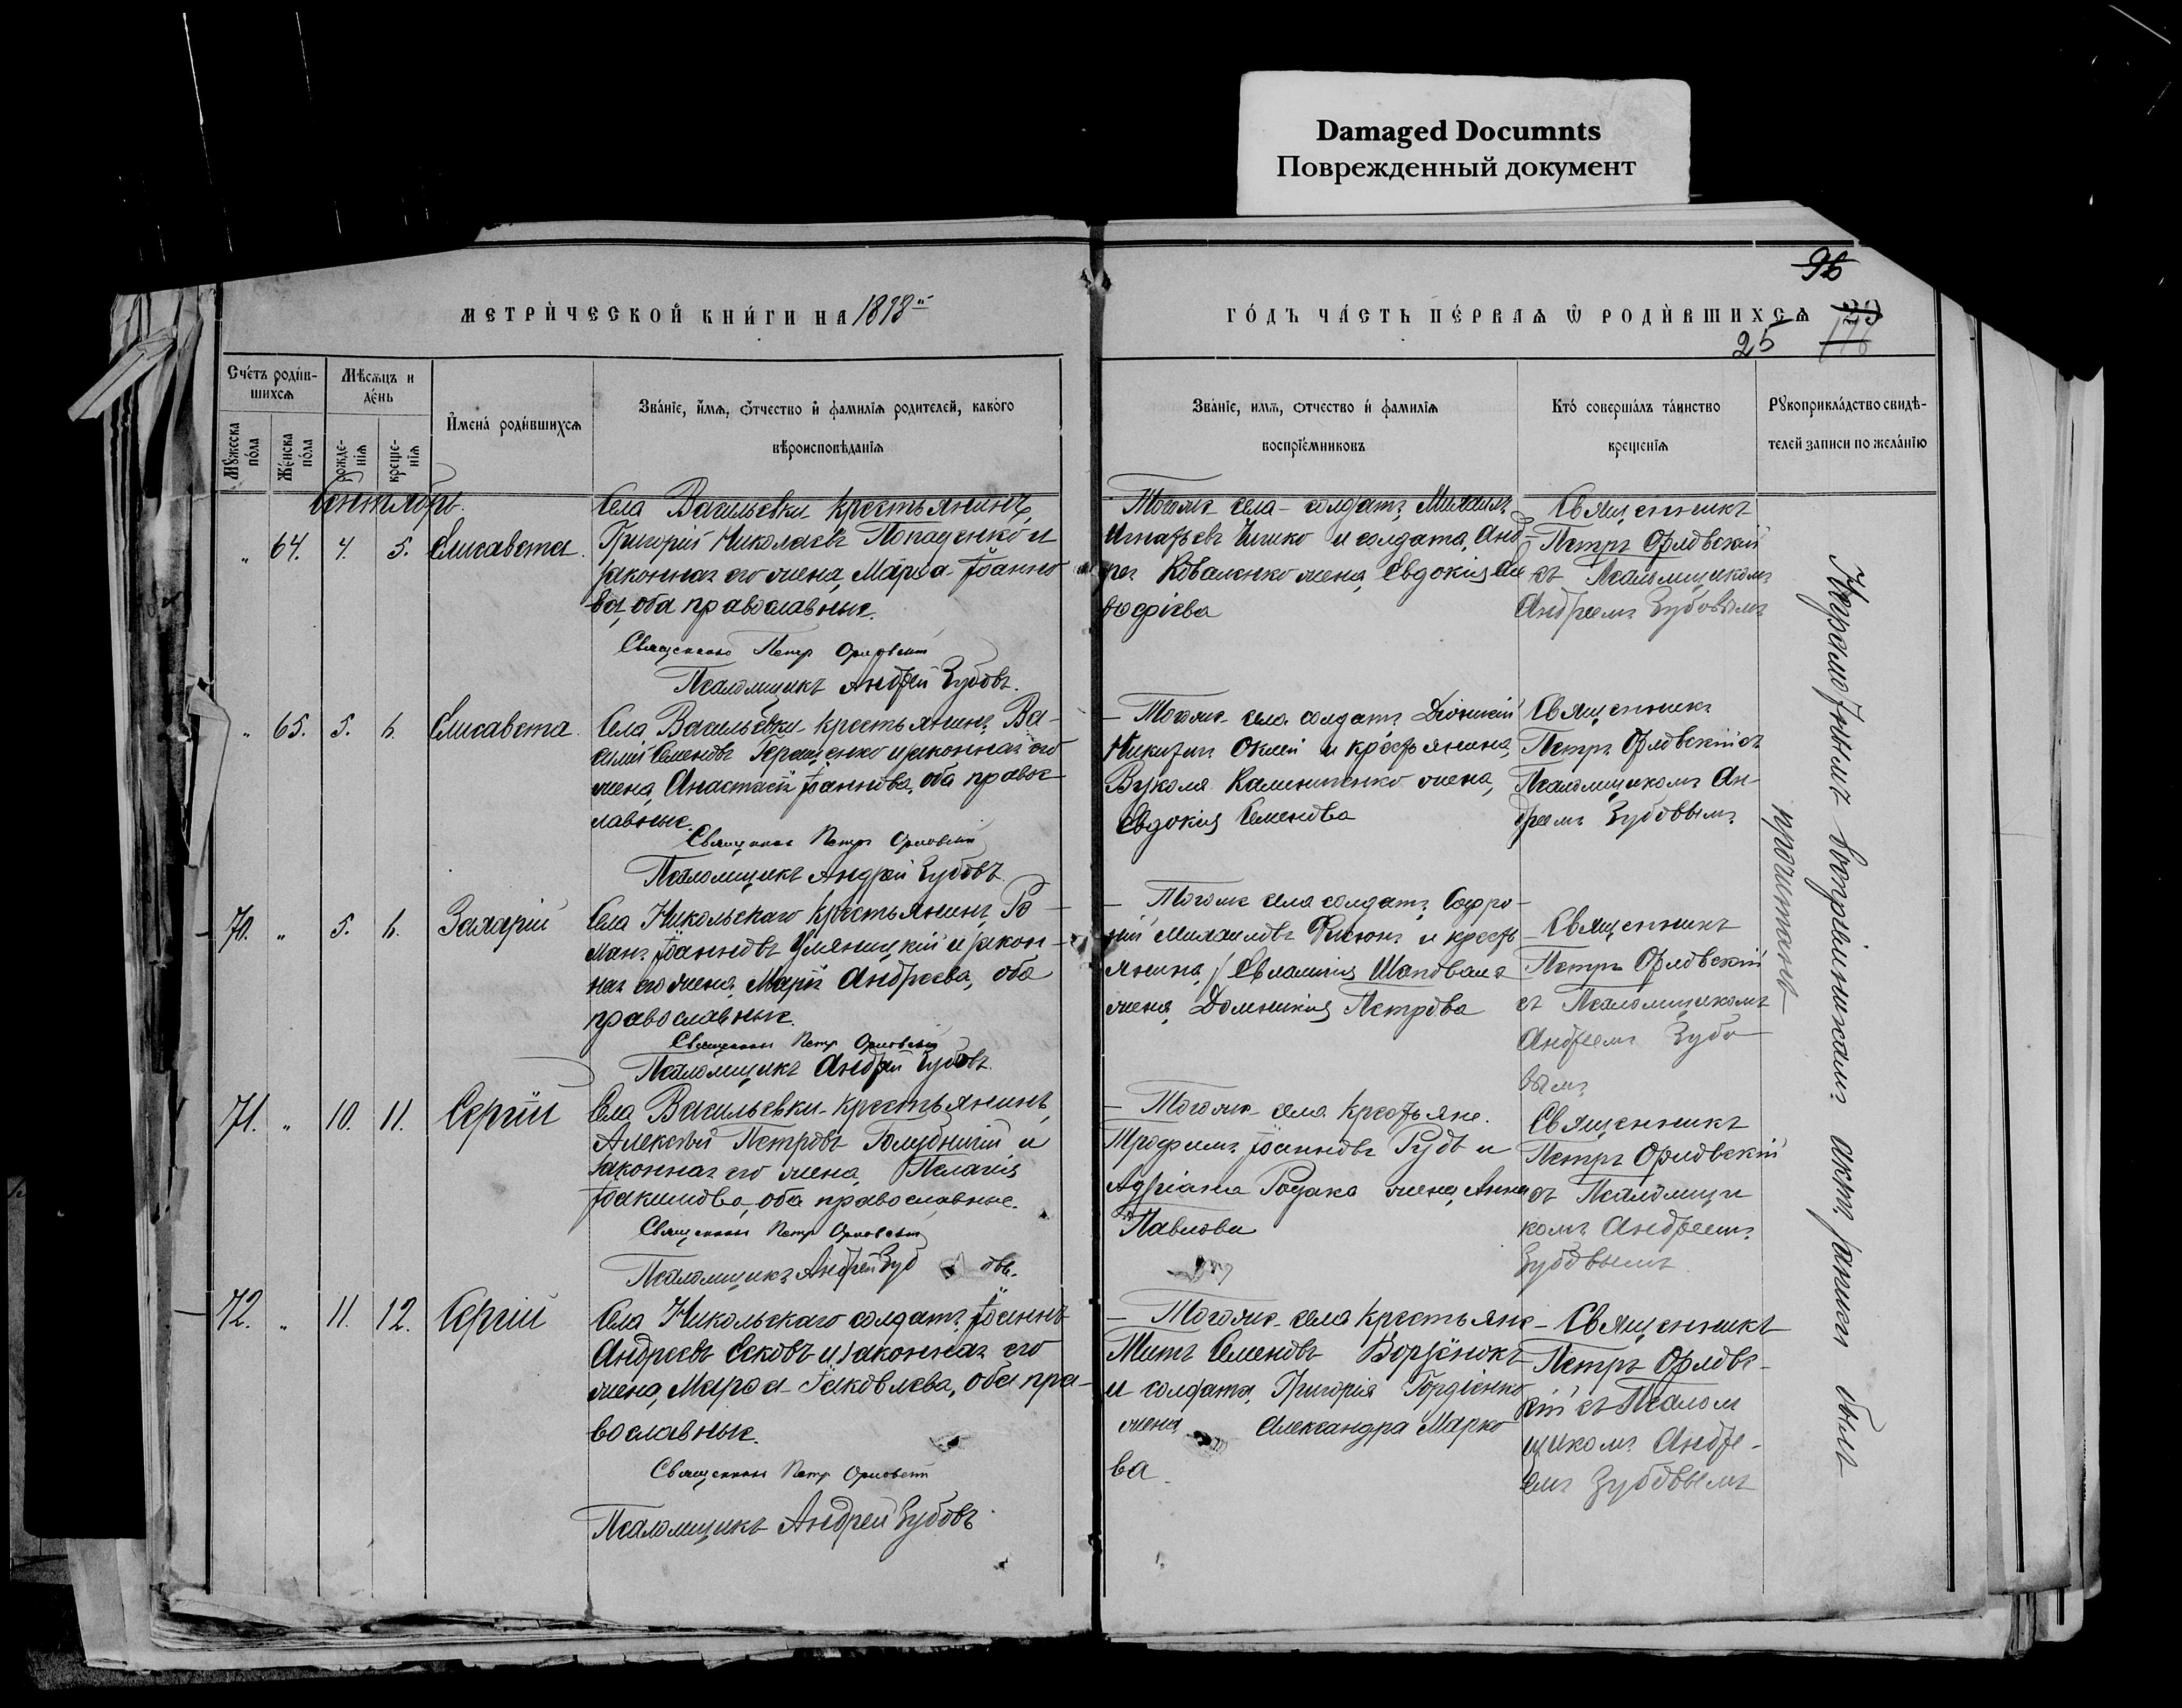 Damaged Documnts
Поврежденный документ
96
МЕТРИ́ЧЕСКОЙ КНИ́ГИ НА 1898й
ГО́ДЪ ЧА́СТЬ ПЕ́РВАѦ Ѡ РОДИ́ВШИХСѦ
25
Сче́тъ роди́в-
шихсѧ
Мѣ́сѧцъ и
де́нь
Мꙋ́жеска
по́ла
Же́нска
по́ла
рожде-
нїѧ
креще-
нїѧ
И҆мена́ роди́вшихсѧ
Зва́нїе, и҆́мѧ, ѻ҆́тчество и҆ фами́лїѧ родителей, како́го
вѣроисповѣ́данїѧ
Зва́нїе, имѧ, отчество и҆ фамилїѧ
воспрїе́мниковъ
Кто́ соверша́лъ та́инство
креще́нїѧ
Рꙋкоприкла́дство свидѣ́-
телей записи по жела́нїю
Сентябрь.
„ 64. 4. 5. Елисавета.
Села Васильевки крестьянинъ
Григорій Николаевъ Попаденко и
законная его жена Марѳа Іоанно
ва, оба православные.
Священникъ Петръ Орловскій
Псаломщикъ Андрей Зубовъ.
Тогоже села солдатъ Михаилъ
Игнатьевъ и солдата Анд
рея Коваленко жена Евдокія
Священникъ
Петръ Орловскій
съ Псаломщикомъ
Андреемъ Зубовымъ
„ 65. 5. 6. Елисавета.
Села Васильевки крестьянинъ Ва-
силій Семеновъ Геращенко и законная его
жена Анастасія Іоаннова, оба правос-
лавные.
Священникъ Петръ Орловскій
Псаломщикъ Андрей Зубовъ.
Тогоже села солдатъ Діонисій
Никитинъ и крестьянина
Вукола Калиниченко жена
Евдокія Семенова
Священникъ
Петръ Орловскій съ
Псаломщикомъ Ан-
дреемъ Зубовымъ
70. „ 5. 6. Захарій
Села Никольскаго крестьянинъ Ро-
манъ Іоанновъ Уманицкій и закон-
ная его жена Марія Андреева, оба
православные.
Священникъ Петръ Орловскій
Псаломщикъ Андрей Зубовъ.
Тогоже села солдатъ Софро-
ній Михаиловъ и кресть
янина Шаповала
жена Домникія Петрова
Священникъ
Петръ Орловскій
съ Псаломщикомъ
Андреемъ Зубо-
вымъ
71. „ 10. 11. Сергій
Села Васильевки крестьянинъ
Алексѣй Петровъ Голубничій и
законная его жена Пелагія
Іоакимова, оба православные.
Священникъ Петръ Орловскій
Псаломщикъ Андрей Зубовъ.
Тогоже села крестьяне
Трофимъ Іоанновъ и
Адріана жена Анна
Павлова
Священникъ
Петръ Орловскій
съ Псаломщи
комъ Андреемъ
Зубовымъ
72. „ 11. 12. Сергій
Села Никольскаго солдатъ Іоаннъ
Андреевъ Сековъ и законная его
жена Марѳа Іаковлева, оба пра-
вославные.
Священникъ Петръ Орловскій
Псаломщикъ Андрей Зубовъ
Тогоже села крестьяне
Титъ Семеновъ
и солдата Григорія Гордіенко
жена Александра Марко
ва.
Священникъ
Петръ Орловс-
кій съ Псалом
щикомъ Андре-
емъ Зубовымъ
воспріемникамъ актъ записи былъ
прочитанъ